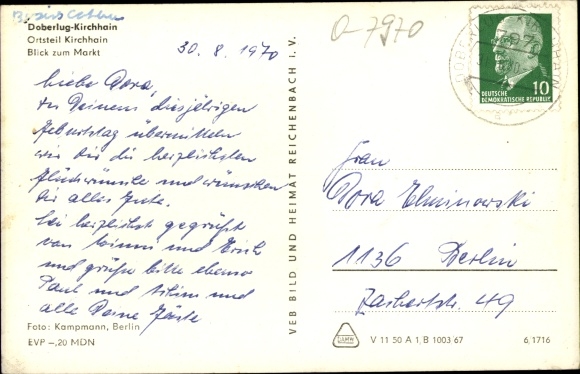 Bezirk Cottbus
Doberlug-Kirchhain
Ortsteil Kirchhain
Blick zum Markt
30.8.1970
O-7970
10
DEUTSCHE
DEMOKRATISCHE REPUBLIK
Liebe Dora,
zu Deinem diesjährigen
Geburtstag übermitteln
wir dir die herzlichsten
Glückwünsche und wünschen
dir alles Gute.
Sei herzlichst gegrüßt
von und Erich
und grüße bitte ebenso
Paul und und
alle Deine Gäste
Foto: Kampmann, Berlin
EVP -,20 MDN
VEB BILD UND HEIMAT REICHENBACH i. V.
Frau
Dora
1136 Berlin
Zachertstr. 49
V 11 50 A 1, B 1003 67
6, 1716